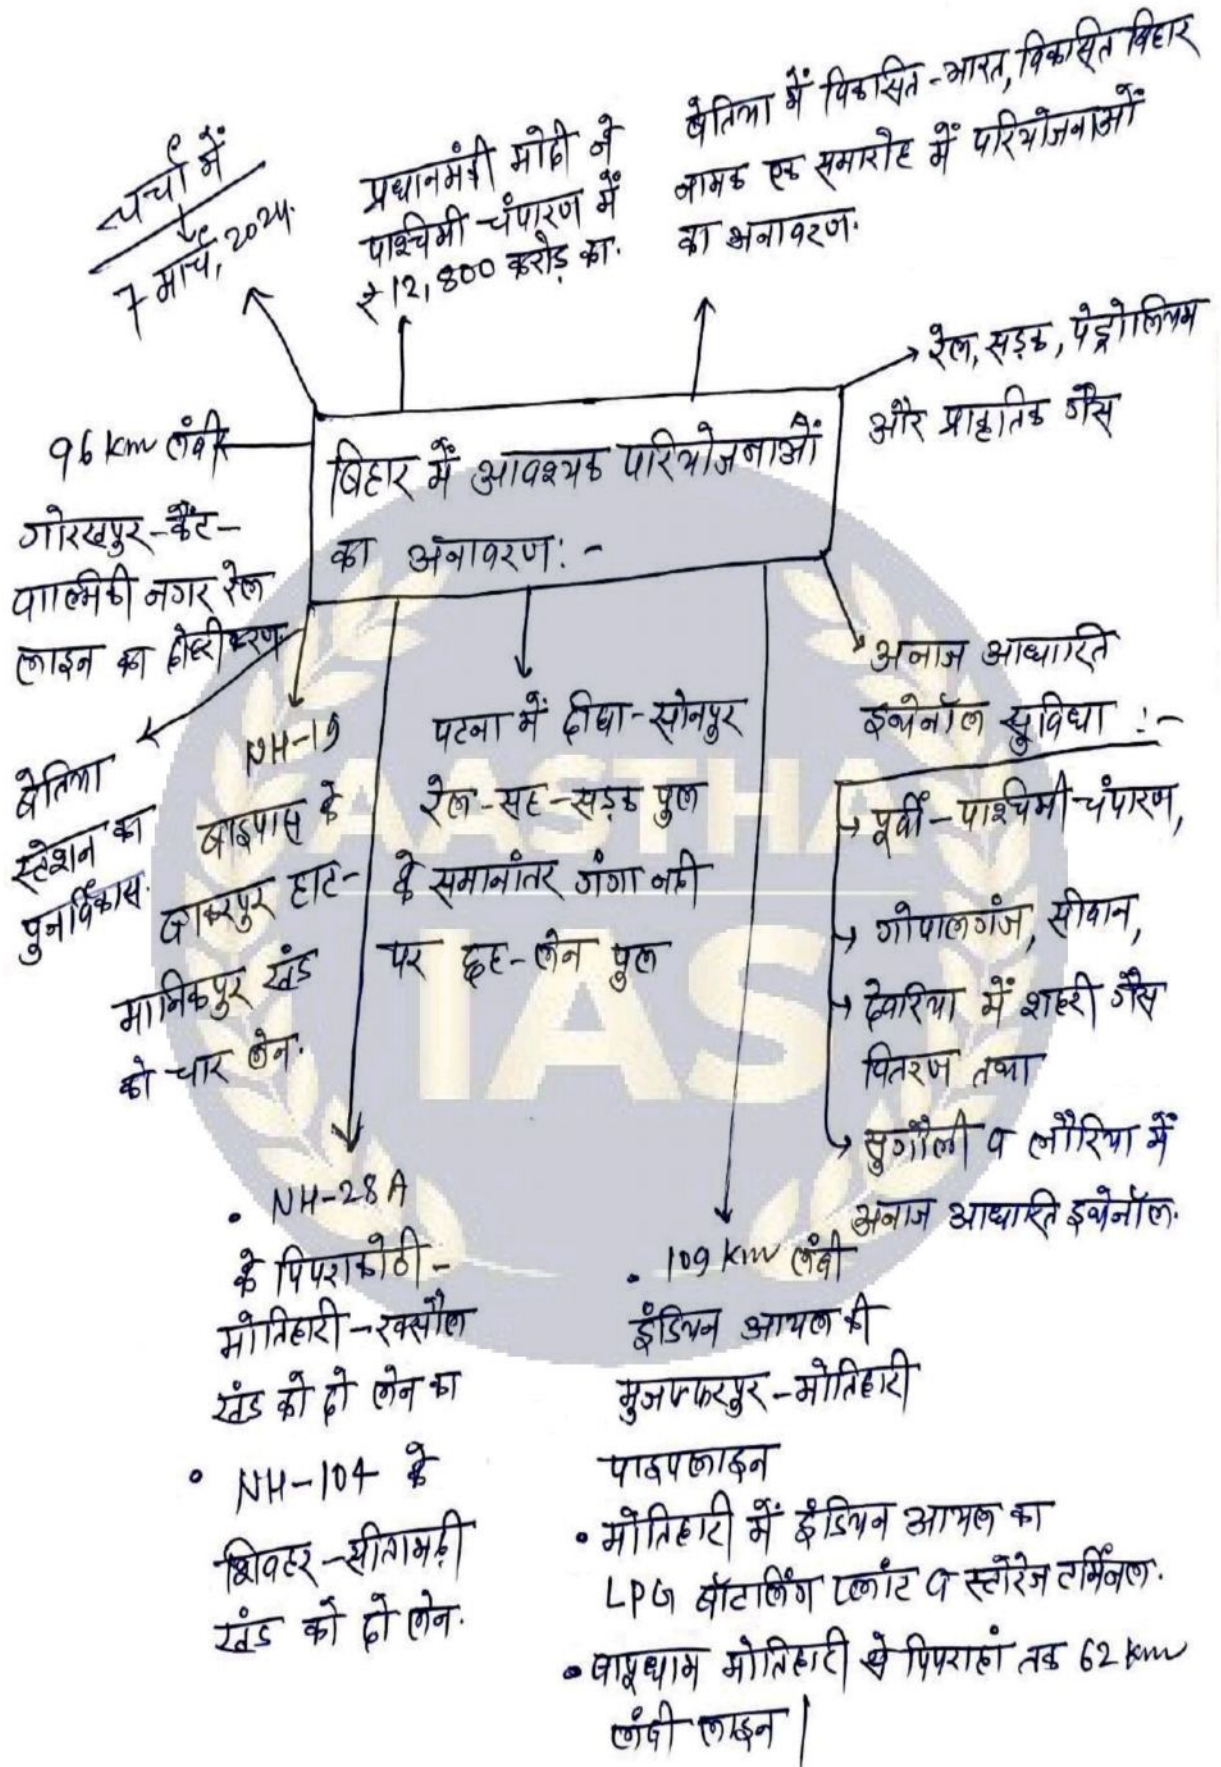 चर्चा में
7 मार्च, 2024.
प्रधानमंत्री मोदी ने
पाश्चिमी चंपारण में
₹12,800 करोड़ का.
बेतिया में विकसित-भारत, विकसित बिहार
नामक एक समारोह में परियोजनाओं
का अनावरण.
रेल, सड़क, पेट्रोलियम
और प्राकृतिक गैस
बिहार में आवश्यक परियोजनाओं
का अनावरण: -
96 km लंबी
गोरखपुर-कैंट-
वाल्मिकी नगर रेल
लाइन का दोहरीकरण
बेतिया
स्टेशन का
पुनर्विकास.
NH-19
बाइपास के
बाकरपुर हाट-
मानिकपुर खंड
को चार लेन.
पटना में दीघा-सोनपुर
रेल-सह-सड़क पुल
के समानांतर गंगा नदी
पर छह-लेन पुल
अनाज आधारित
इथेनॉल सुविधा :-
पूर्वी-पाश्चिमी चंपारण,
गोपालगंज, सीवान,
देवरिया में शहरी गैस
वितरण तथा
सुगौली व लौरिया में
अनाज आधारित इथेनॉल.
• NH-28A
के पिपराकोठी-
मोतिहारी-रक्सौल
खंड को दो लेन का
• NH-104 के
शिवहर-सीतामढ़ी
खंड को दो लेन.
• 109 km लंबी
इंडियन आयल की
मुजफ्फरपुर-मोतिहारी
पाइपलाइन
• मोतिहारी में इंडियन आयल का
LPG बॉटलिंग प्लांट व स्टोरेज टर्मिनल.
• बापूधाम मोतिहारी से पिपराहां तक 62 km
लंबी लाइन |
AASTHA
IAS